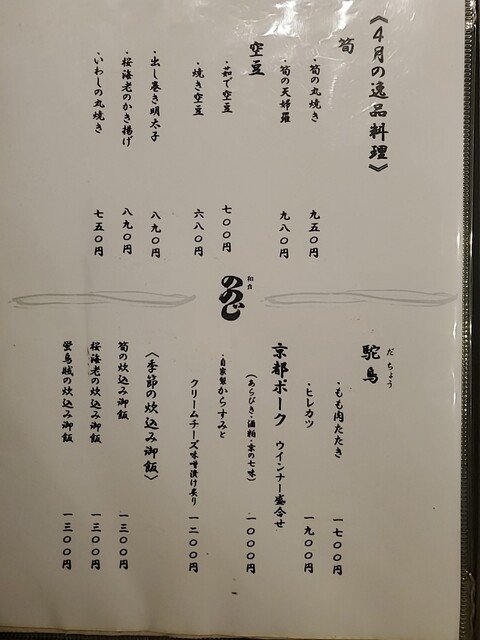 《４月の逸品料理》
筍
・筍の丸焼き　九五〇円
・筍の天婦羅　九八〇円
空豆
・茹で空豆　七〇〇円
・焼き空豆　六八〇円
・出し巻き明太子　八九〇円
・桜海老のかき揚げ　八九〇円
・いわしの丸焼き　七五〇円
和食
ののじ
駝鳥
だちょう
・もも肉たたき　一七〇〇円
・ヒレカツ　一九〇〇円
京都ポーク　ウインナー盛合せ
（あらびき・酒粕・京の七味）　一〇〇〇円
・自家製からすみと
クリームチーズ味噌漬け炙り　一二〇〇円
〈季節の炊込み御飯〉
筍の炊込み御飯　一三〇〇円
桜海老の炊込み御飯　一三〇〇円
蛍烏賊の炊込み御飯　一三〇〇円